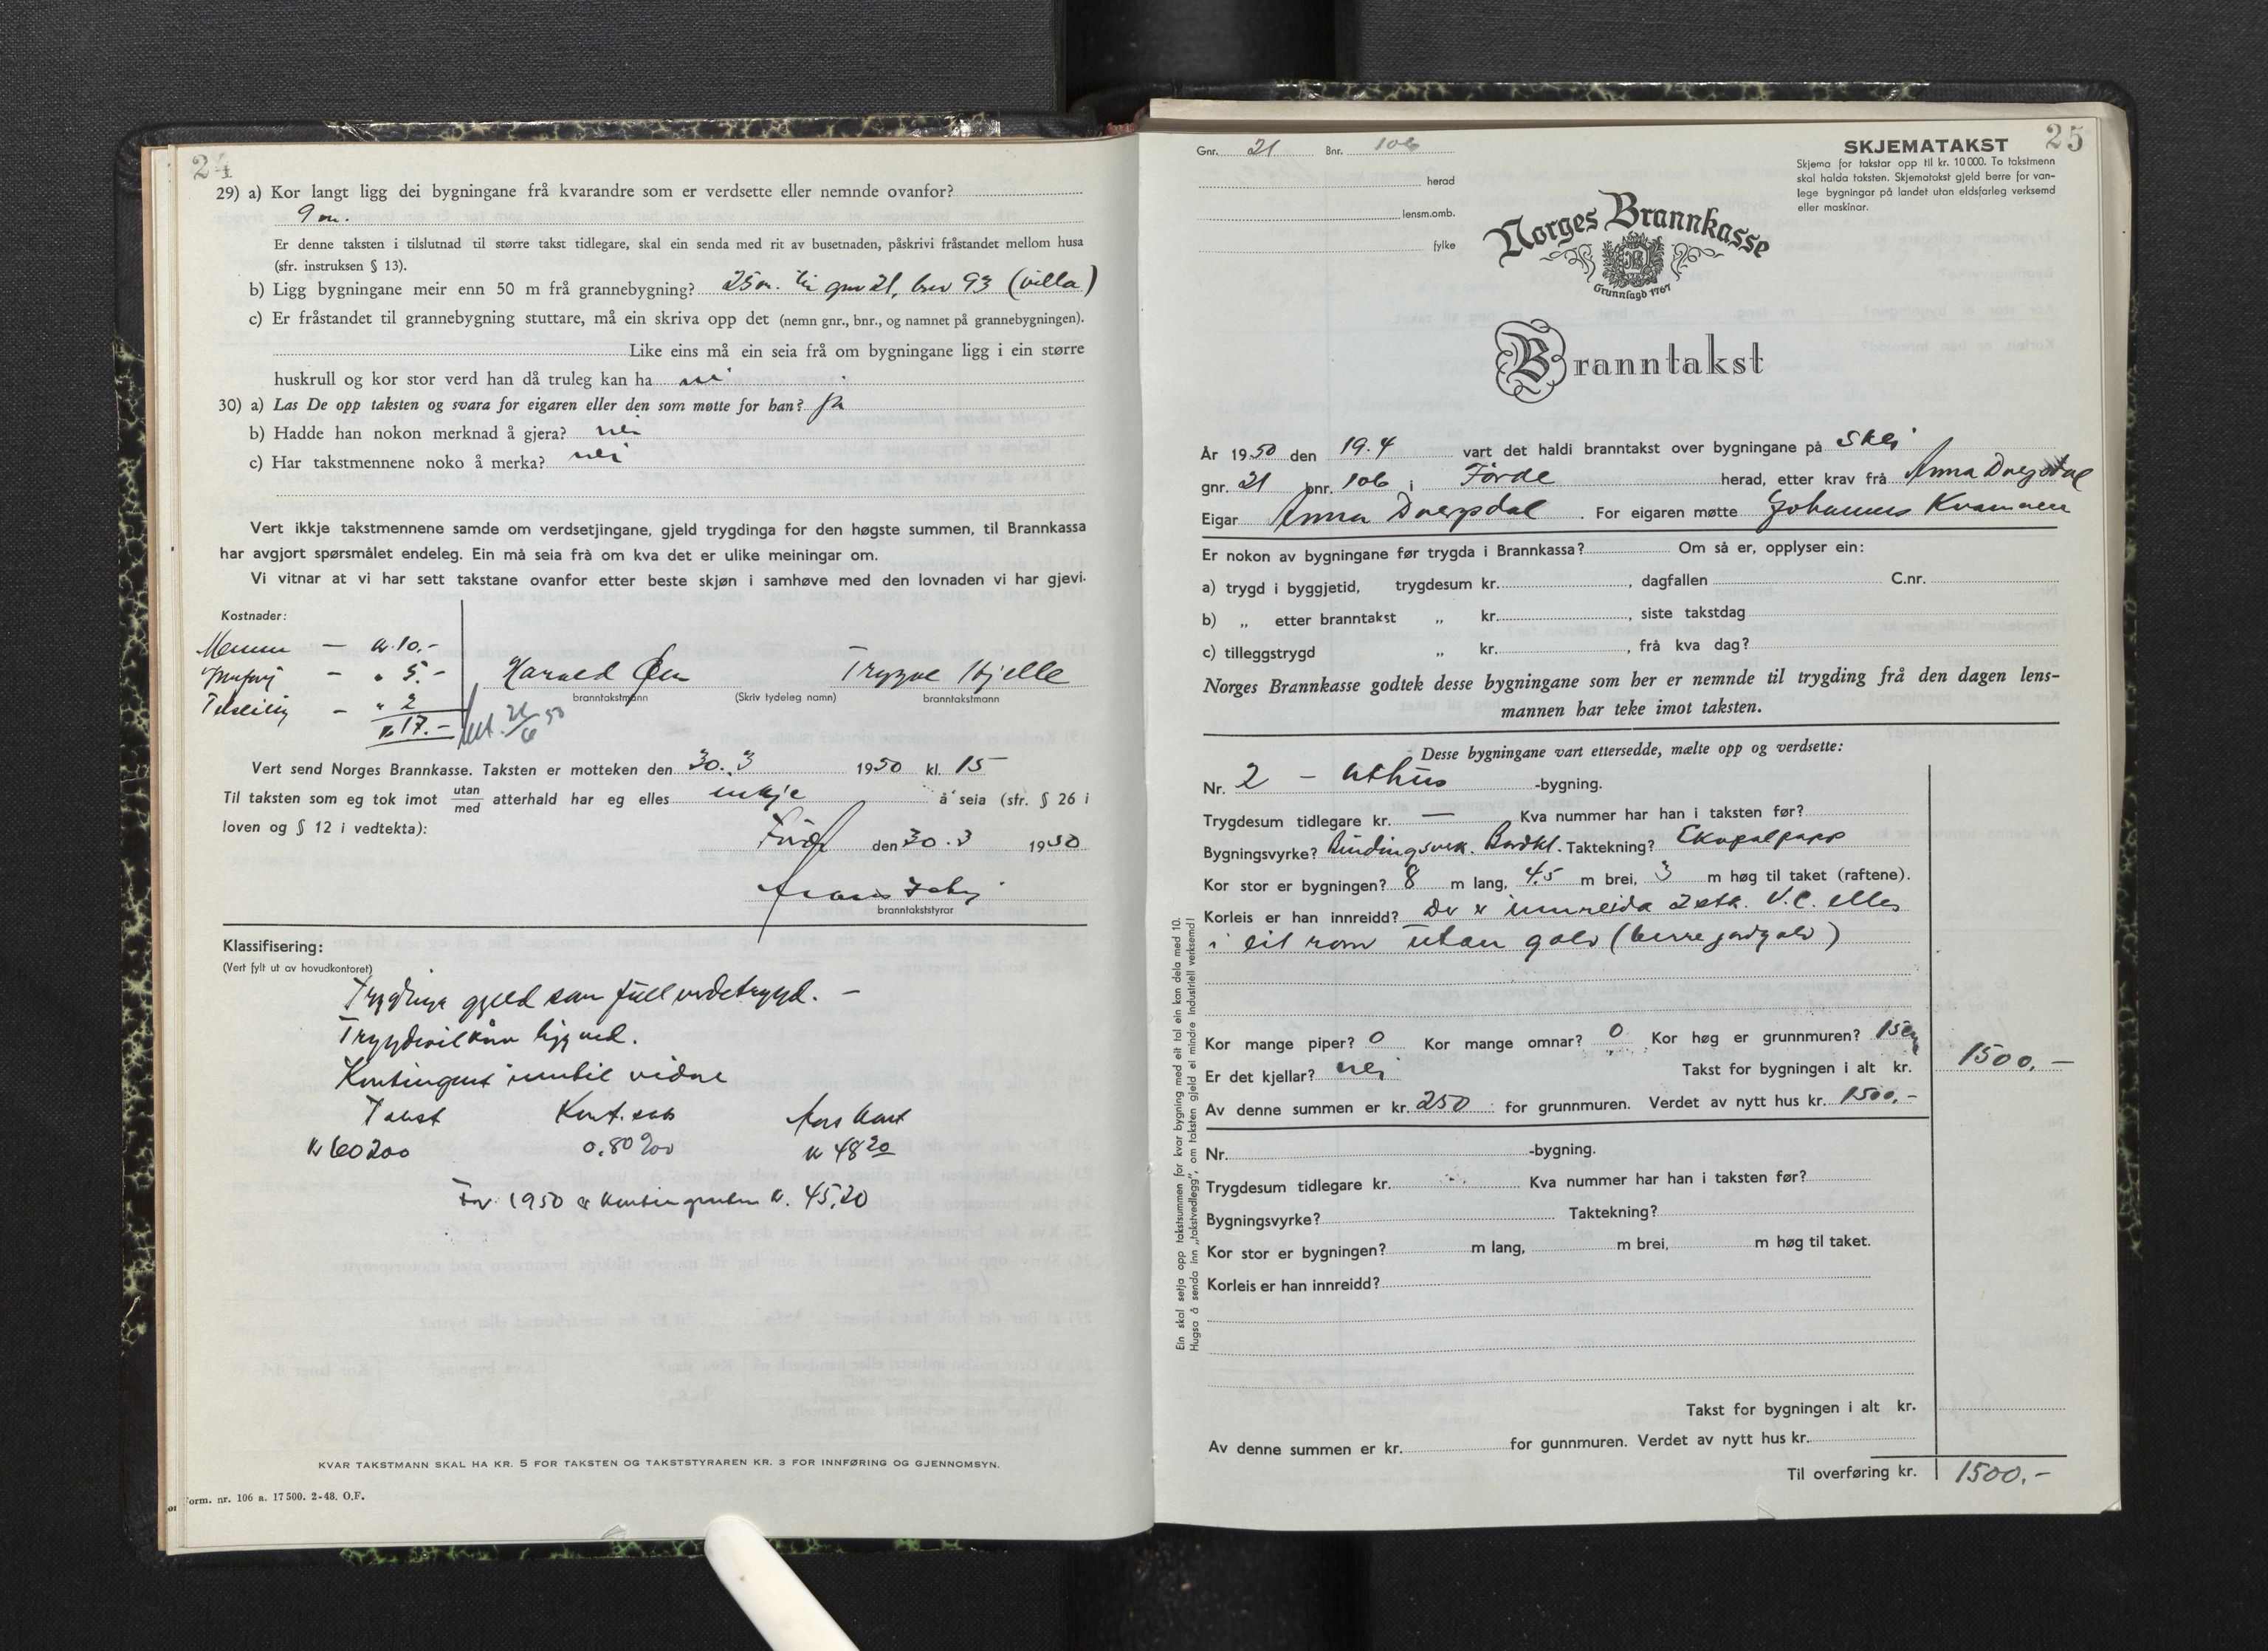 24
29) a) Kor langt ligg dei bygningane frå kvarandre som er verdsette eller nemnde ovanfor?
9 m.
Er denne taksten i tilslutnad til større takst tidlegare, skal ein senda med rit av busetnaden, påskrivi fråstandet mellom husa
(sfr. instruksen § 13).
b) Ligg bygningane meir enn 50 m frå grannebygning? 25 m. til gnr 21, bnr 93 (villa)
c) Er fråstandet til grannebygning stuttare, må ein skriva opp det (nemn gnr., bnr., og namnet på grannebygningen).
Like eins må ein seia frå om bygningane ligg i ein større
huskrull og kor stor verd han då truleg kan ha nei
30) a) Las De opp taksten og svara for eigaren eller den som møtte for han? ja
b) Hadde han nokon merknad å gjera? nei
c) Har takstmennene noko å merka? nei
Vert ikkje takstmennene samde om verdsetjingane, gjeld trygdinga for den høgste summen, til Brannkassa
har avgjort spørsmålet endeleg. Ein må seia frå om kva det er ulike meiningar om.
Vi vitnar at vi har sett takstane ovanfor etter beste skjøn i samhøve med den lovnaden vi har gjevi.
Kostnader:
— kr. 10.-
— " 5.-
— " 2
kr 17.-
Harald Øen Trygve Hjelle
branntakstmann (Skriv tydeleg namn) branntakstmann
Vert send Norges Brannkasse. Taksten er motteken den 30.3 1950 kl. 15
Til taksten som eg tok imot utan/med atterhald har eg elles inkje å seia (sfr. § 26 i
loven og § 12 i vedtekta):
Førde den 30.3 1950
branntakststyrar
Klassifisering:
(Vert fylt ut av hovudkontoret)
Trygdinga gjeld som full verdetrygd. —
Trygdevilkår ligg ved.
Kontingent inntil vidare
Takst Kont. sats Års kont
kr 60200 0.80 ‰ kr 48 20
For 1950 er kontingenten kr. 45,20
KVAR TAKSTMANN SKAL HA KR. 5 FOR TAKSTEN OG TAKSTSTYRAREN KR. 3 FOR INNFØRING OG GJENNOMSYN.
Form. nr. 106 a. 17 500. 2-48. O.F.
25
Gnr. 21 Bnr. 106
herad
lensm.omb.
fylke
SKJEMATAKST
Skjema for takstar opp til kr. 10 000. To takstmenn
skal halda taksten. Skjematakst gjeld berre for van-
lege bygningar på landet utan eldsfarleg verksemd
eller maskinar.
Norges Brannkasse
Grunnlagd 1767
Branntakst
År 1950 den 19.4 vart det haldi branntakst over bygningane på Skei
gnr. 21 bnr. 106 i Förde herad, etter krav frå Anna Dvergsdal
Eigar Anna Dvergsdal. For eigaren møtte Johannes Kvammen
Er nokon av bygningane før trygda i Brannkassa? Om så er, opplyser ein:
a) trygd i byggjetid, trygdesum kr. , dagfallen C.nr.
b) „ etter branntakst „ kr. , siste takstdag
c) tilleggstrygd „ kr. , frå kva dag?
Norges Brannkasse godtek desse bygningane som her er nemnde til trygding frå den dagen lens-
mannen har teke imot taksten.
Desse bygningane vart ettersedde, mælte opp og verdsette:
Nr. 2 - uthus -bygning.
Trygdesum tidlegare kr. — Kva nummer har han i taksten før?
Bygningsvyrke? Bindingsverk. Bordkl. Taktekning? Ekopalpapp
Kor stor er bygningen? 8 m lang, 4.5 m brei, 3 m høg til taket (raftene).
Korleis er han innreidd? Der er innreida 2 stk. V.C. elles
i eit rom utan golv (berre jordgolv)
Kor mange piper? 0 Kor mange omnar? 0 Kor høg er grunnmuren? 15 cm
Er det kjellar? nei Takst for bygningen i alt kr. 1500.-
Av denne summen er kr. 250 for grunnmuren. Verdet av nytt hus kr. 1500.-
Nr. -bygning.
Trygdesum tidlegare kr. Kva nummer har han i taksten før?
Bygningsvyrke? Taktekning?
Kor stor er bygningen? m lang, m brei, m høg til taket.
Korleis er han innreidd?
Takst for bygningen i alt kr.
Av denne summen er kr. for gunnmuren. Verdet av nytt hus kr.
Til overføring kr. 1500.-
Ein skal setja opp takstsummen for kvar bygning med eit tal ein kan dela med 10.
Hugsa å senda inn „takstvedlegg", om taksten gjeld ei mindre industriell verksemd!